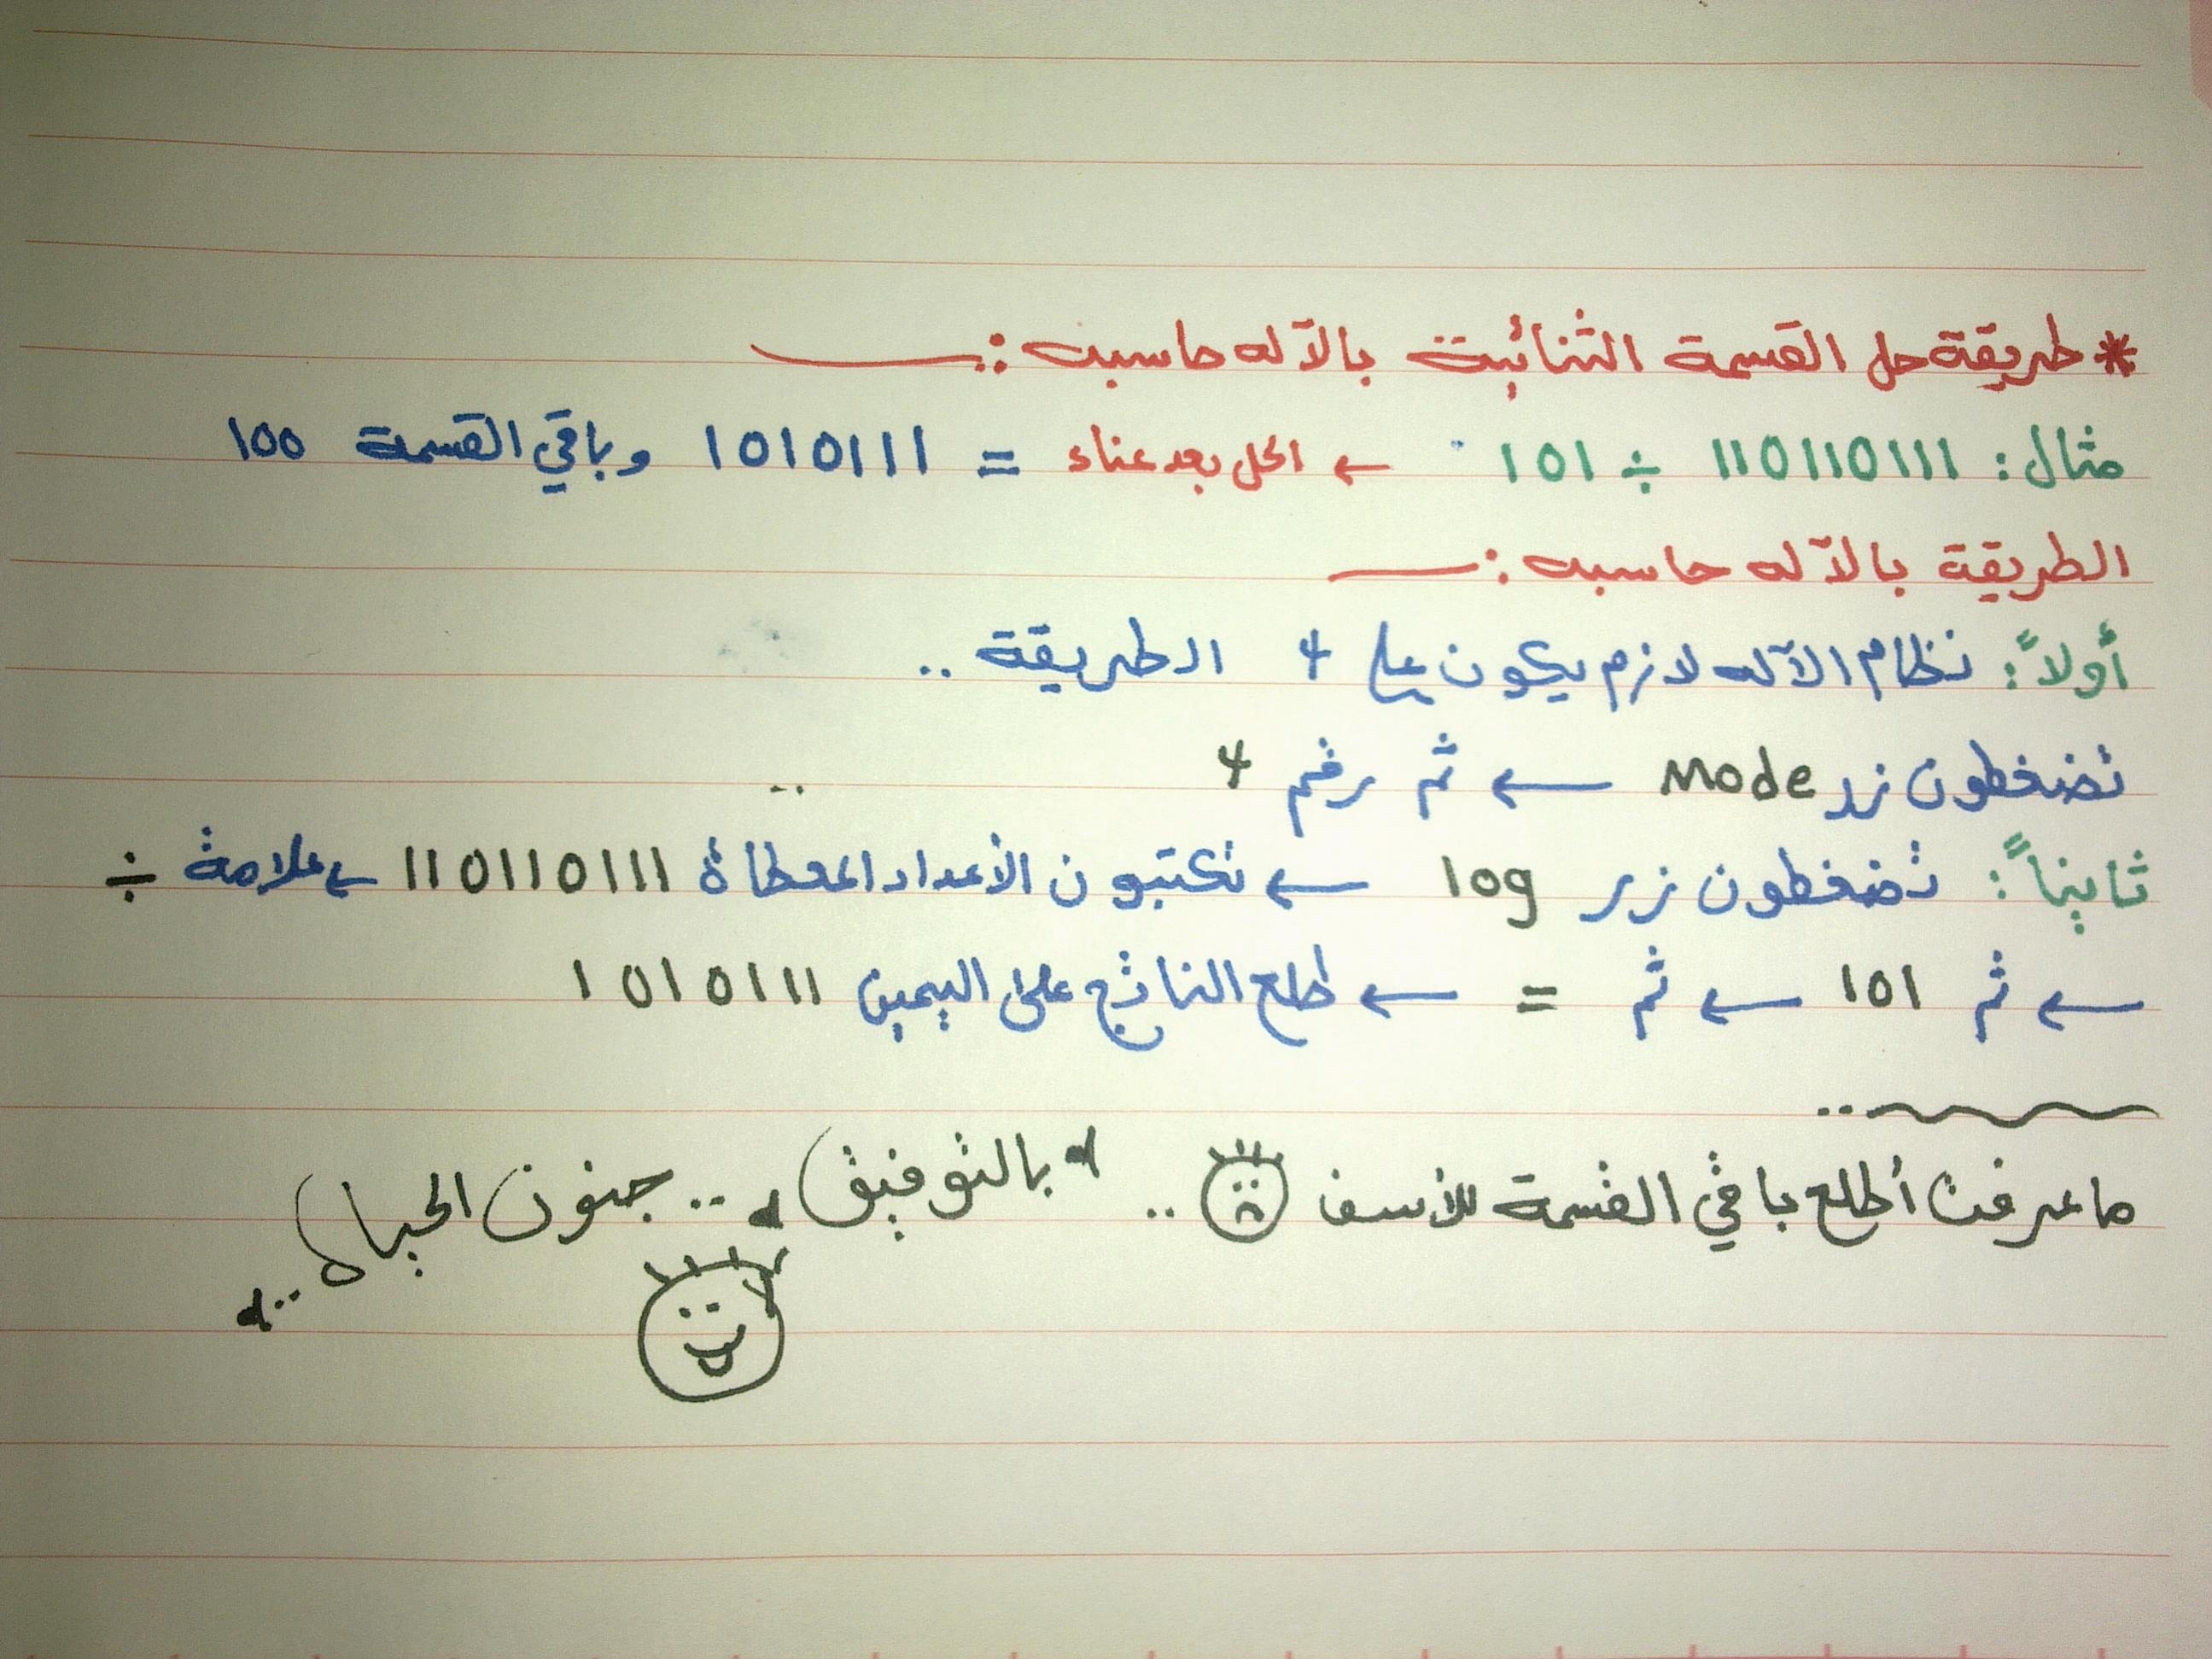 * طريقة حل القسمة الثنائية بالآله حاسبه :ــ
مثال : 110110111 ÷ 101 ← الحل بعد عناء = 1010111 وباقي القسمة 100
الطريقة بالآله حاسبه :ــ
أولاً : نظام الآله لازم يكون على 4 الطريقة ..
تضغطون زر Mode ← ثم رقم 4
ثانياً : تضغطون زر log ← تكتبون الأعداد المعطاة 110110111 ← علامة ÷
← ثم 101 ← ثم = ← طلع الناتج على اليمين 1010111
ما عرفت أطلع باقي القسمة للأسف .. بالتوفيق .. جنون الحياة ..